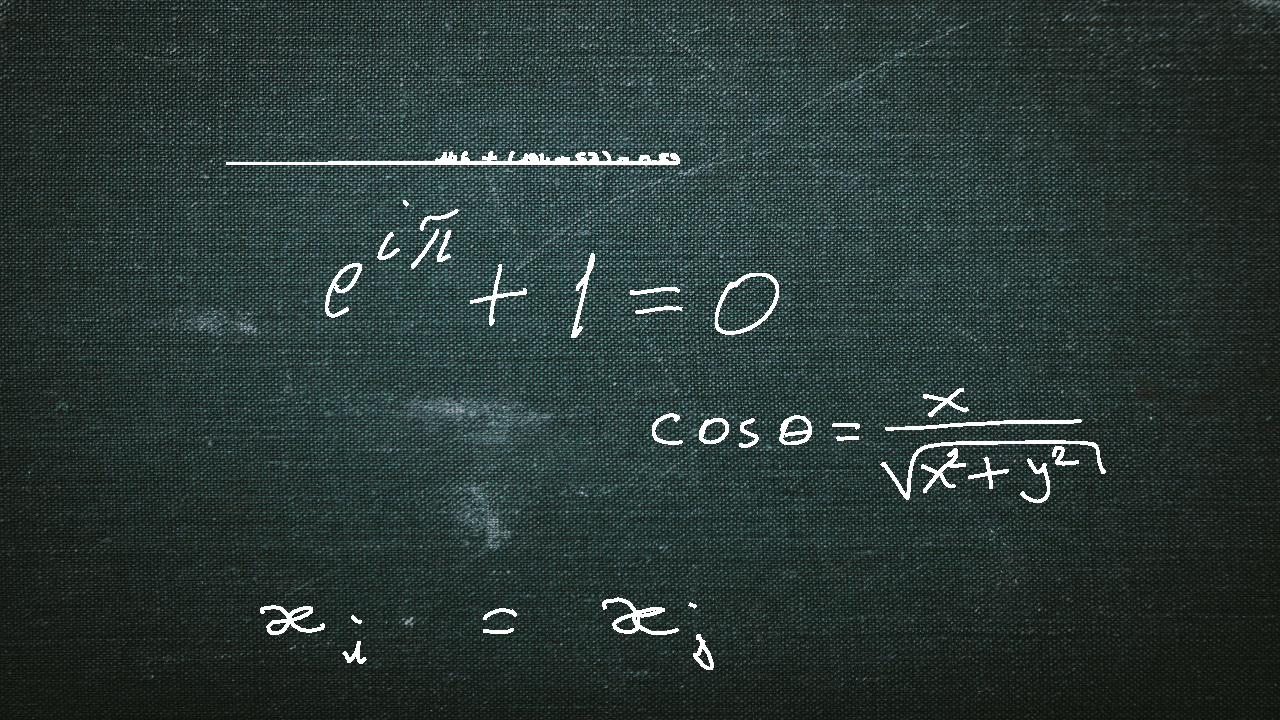 e^{iπ} + 1 = 0
cos θ = x / √(x² + y²)
x_i = x_j